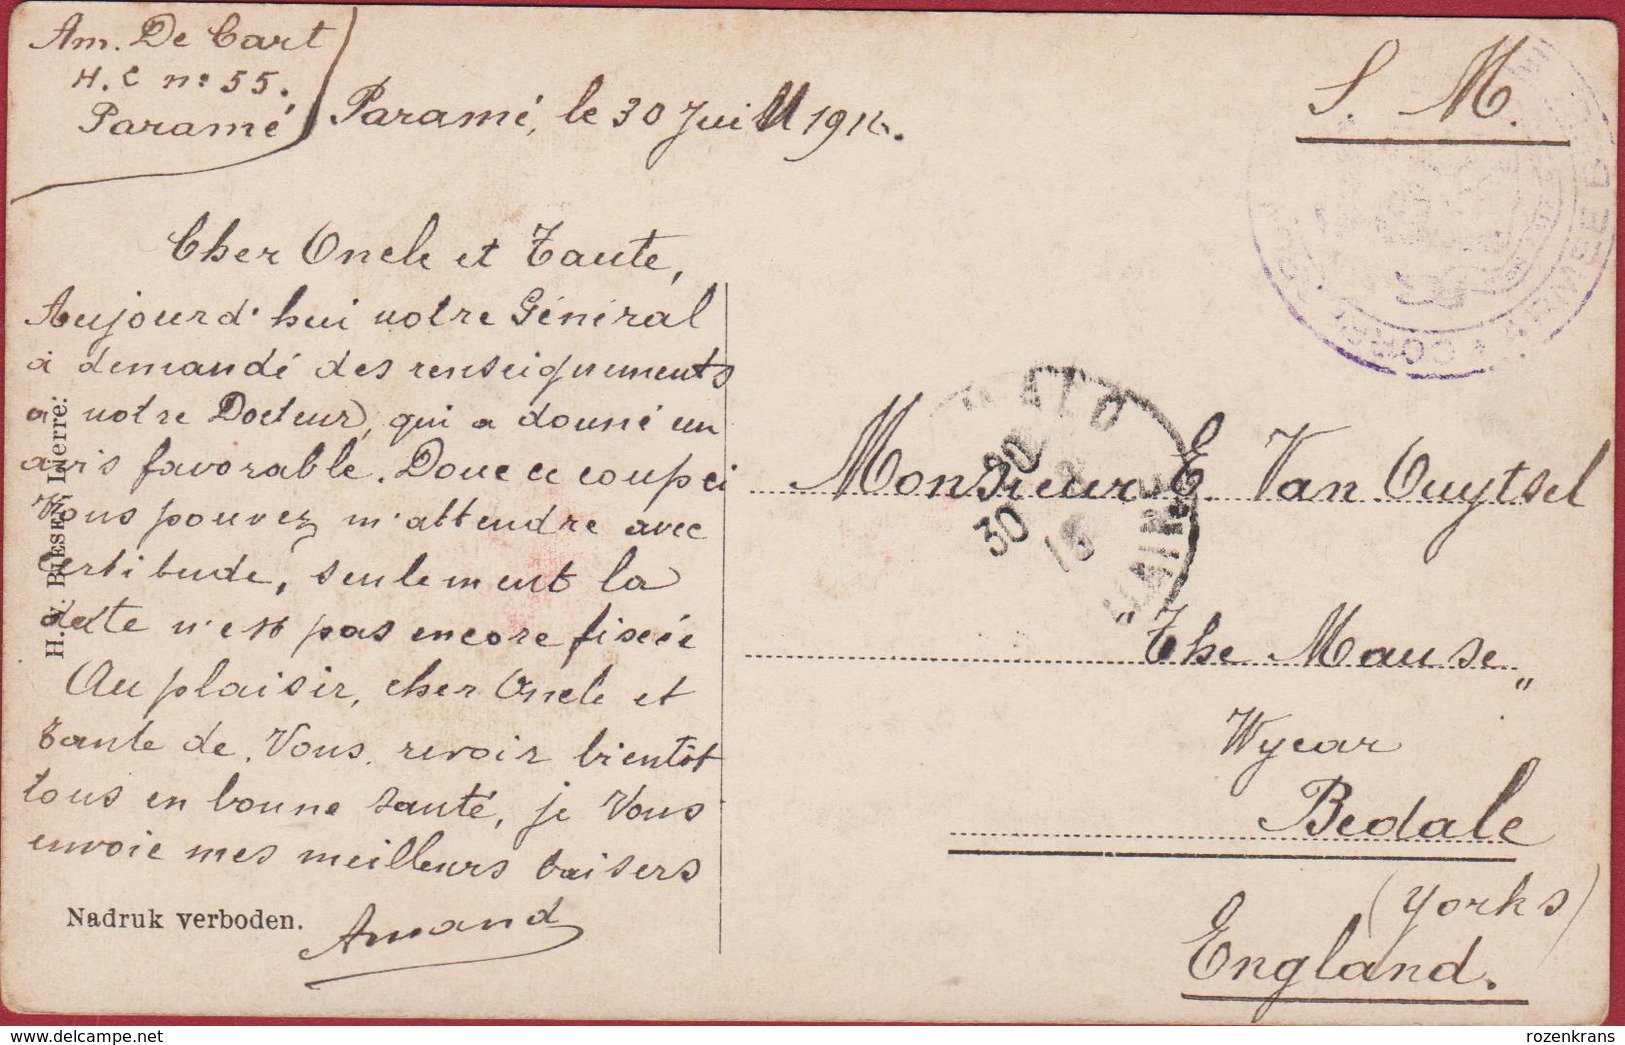 Am. De Cart
H.C nº 55.
Paramé
Paramé, le 30 Juill 1916.
S. M.
Cher Oncle et Tante,
Aujourd'hui notre Général
a demandé des renseignements
a notre Docteur, qui a donné un
avis favorable. Donc ce coup ci
Vous pouvez m'attendre avec
certitude, seulement la
date n'est pas encore fiscée
Au plaisir, cher Oncle et
tante de Vous revoir bientôt
tous en bonne santé, je Vous
envoie mes meilleurs baisers
Amand
H. v. BIESEN, Lierre.
Nadruk verboden.
MALO
30
30
16
ARMÉE B
CORR
Monsieur E. Van Cuytsel
"The Mause"
Wycar
Bedale
(Yorks)
England.
rozenkrans